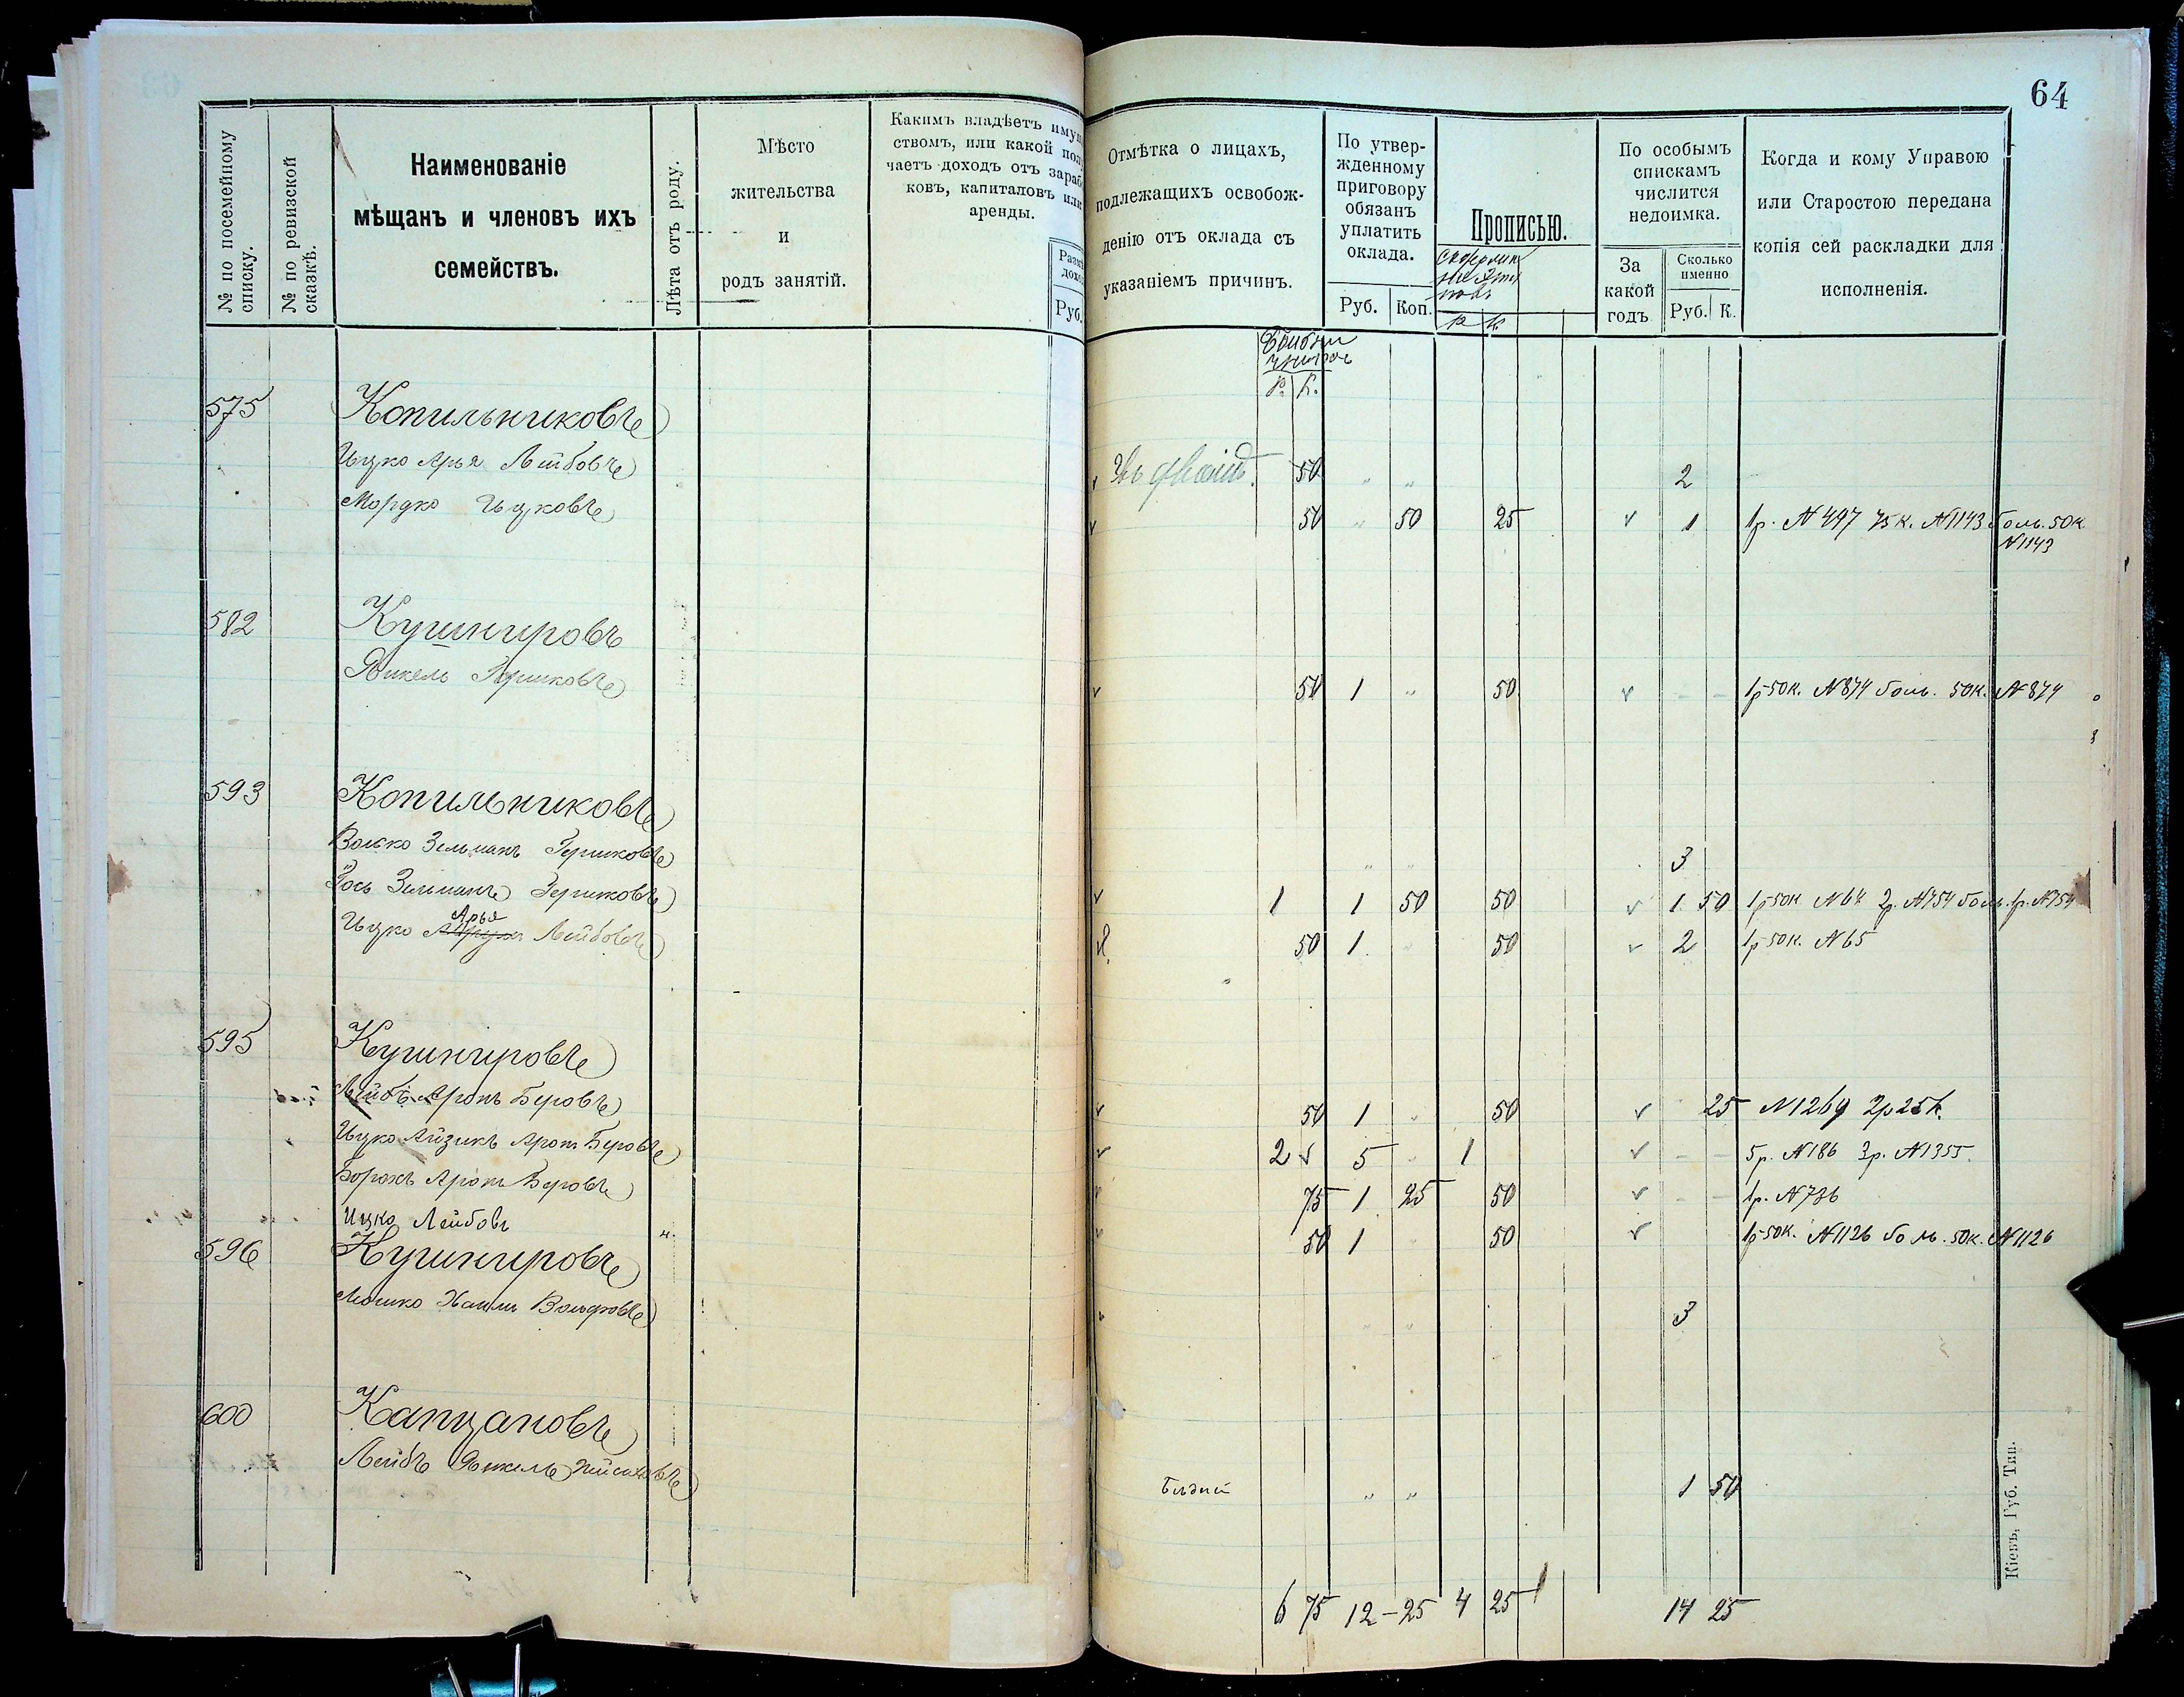 64
№ по посемейному списку.
№ по ревизской сказкѣ.
Наименованіе
мѣщанъ и членовъ ихъ
семействъ.
Лѣта отъ роду.
Мѣсто
жительства
и
родъ занятій.
Какимъ владѣетъ имущ
ствомъ, или какой полу
чаетъ доходъ отъ зараб
ковъ, капиталовъ или
аренды.
Руб.
Отмѣтка о лицахъ,
подлежащихъ освобож-
денію отъ оклада съ
указаніемъ причинъ.
По утвер-
жденному
приговору
обязанъ
уплатить
оклада.
Руб. Коп.
Прописью.
По особымъ
спискамъ
числится
недоимка.
За
какой
годъ
Сколько
именно
Руб. К.
Когда и кому Управою
или Старостою передана
копія сей раскладки для
исполненія.
Р. К.
575 Копильниковъ
Ицко Арья Лейбовъ 50 " " 2
Мордко Ицковъ 50 " 50 25 1 1р. N 497 75 к. N 1143 боль. 50 к
N 1143
582 Кушнировъ
Янкель Гершковъ 50 1 " 50 - - 1р 50к. N 874 боль. 50к. N 874
593 Копильниковъ
Волько Зельманъ Гершковъ " " 3
Іось Зельманъ Гершковъ 1 1 50 50 1. 50 1р 50к N 64 2р. N 754 боль. 1р. N 754
Арья
Ицко Лейбовъ 50 1 " 50 2 1р 50к. N 65
595 Кушнировъ
Лейбъ Аронъ Беровъ 50 1 " 50 25 N 1269 2р 25к.
Ицко Айзикъ Аронъ Беровъ 2 5 " 1 - - 5р. N 186 3р. N 1355.
Борохъ Аронъ Беровъ 75 1 25 50 - - 1р. N 736
Ицко Лейбовъ 50 1 " 50 1р 50к. N 1126 боль. 50к. N 1126
596 Кушнировъ
Мошко Хаимъ Вольфовъ " " 3
600 Капцановъ
Лейбъ Янкель
Бѣдный " " 1 50
6 75 12-25 4 25 14 25
Кіевъ, Губ. Тип.